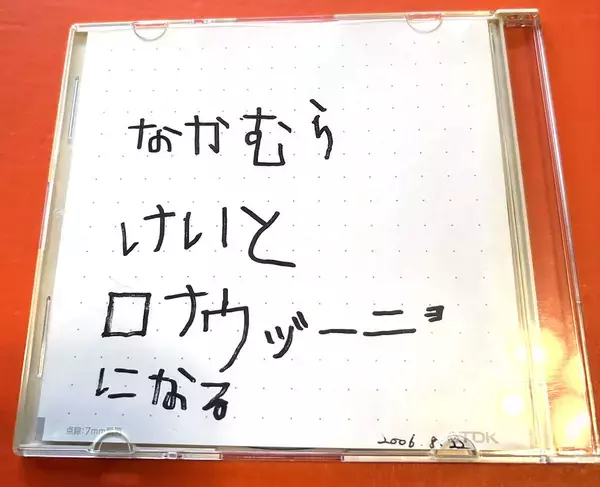 なかむら
けいと
ロナウヅーニョ
になる
7mm
2006.8.22
TDK